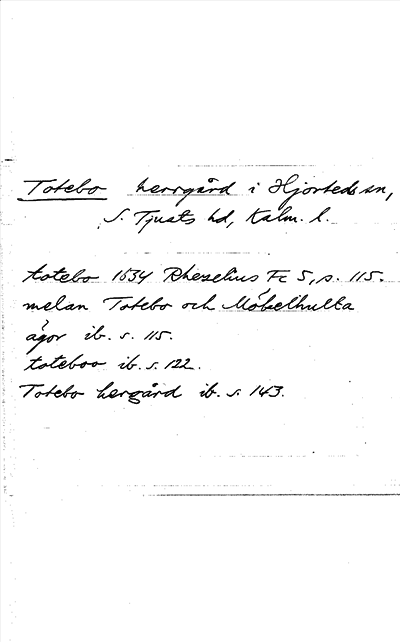 Totebo herrgård i Hjorteds sn,
S. Tjusts hd, Kalm. l.
totebo 1634 Rhezelius Fc 5, s. 115.
melan Totebo och Möckelhulta
ägor ib. s. 115.
toteboo ib. s. 122.
Totebo hergård ib. s. 143.